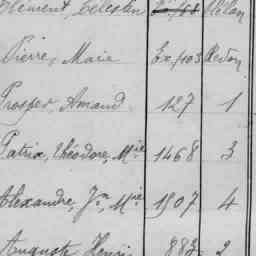 Clément, Célestin Milan
Pierre, Marie Ex/103 Redon
Prosper, Amand 127 1
Patrix, Théodore, Mie 1468 3
Alexandre, Jn, Mie 1907 4
Auguste Henri 883 2